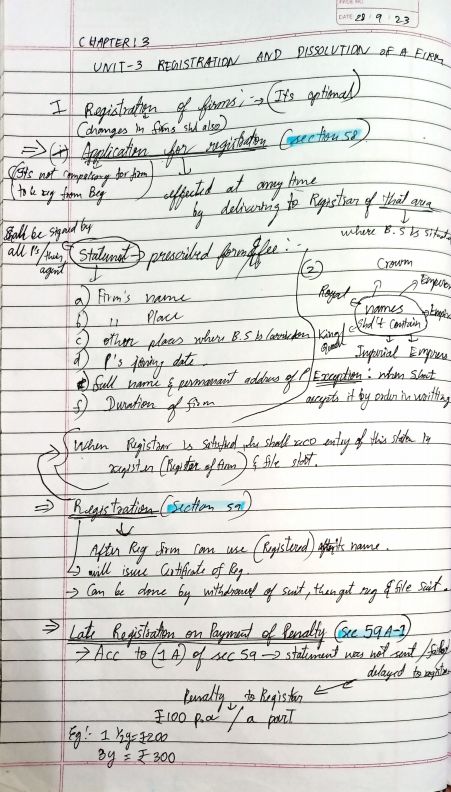 PAGE NO.
DATE 28 / 9 / 23
CHAPTER: 3
UNIT-3 REGISTRATION AND DISSOLUTION OF A FIRM
I Registration of firms :- → (Its optional)
(changes in firms shd also)
⇒ (1) Application for registration (section 58)
(Its not compulsory for firm
to b reg from Beg)
effected at any time
by delivering to Registrar of that area
where B.S is situated
Shall be signed by
all P's / their
agent
Statement → prescribed form & fee :-
a) Firm's name
b) ,, Place
c) other places where B.S is
d) P's joining date.
e) Full name & permanant address of P
f) Duration of firm
(2)
Crown
Royal
Emperor
names
shd't contain
Empire
King
Queen
Imperial Empress
Exception: when
accepts it by order in writting
When Registrar is satisfied, he shall reco entry of this in
register (Register of firm) & file
⇒ Registration (section 59)
After Reg firm can use (Registered) after its name.
→ will issue Certificate of Reg.
→ Can be done by withdrawal of suit, then get reg & file suit.
⇒ Late Registration on Payment of Penalty (sec 59A-1)
→ Acc to (1A) of sec 59 → statement was not sent /
delayed to register
Penalty to Register
₹100 p.a / a part
Eg:- 1 1/2y = ₹200
3y = ₹300